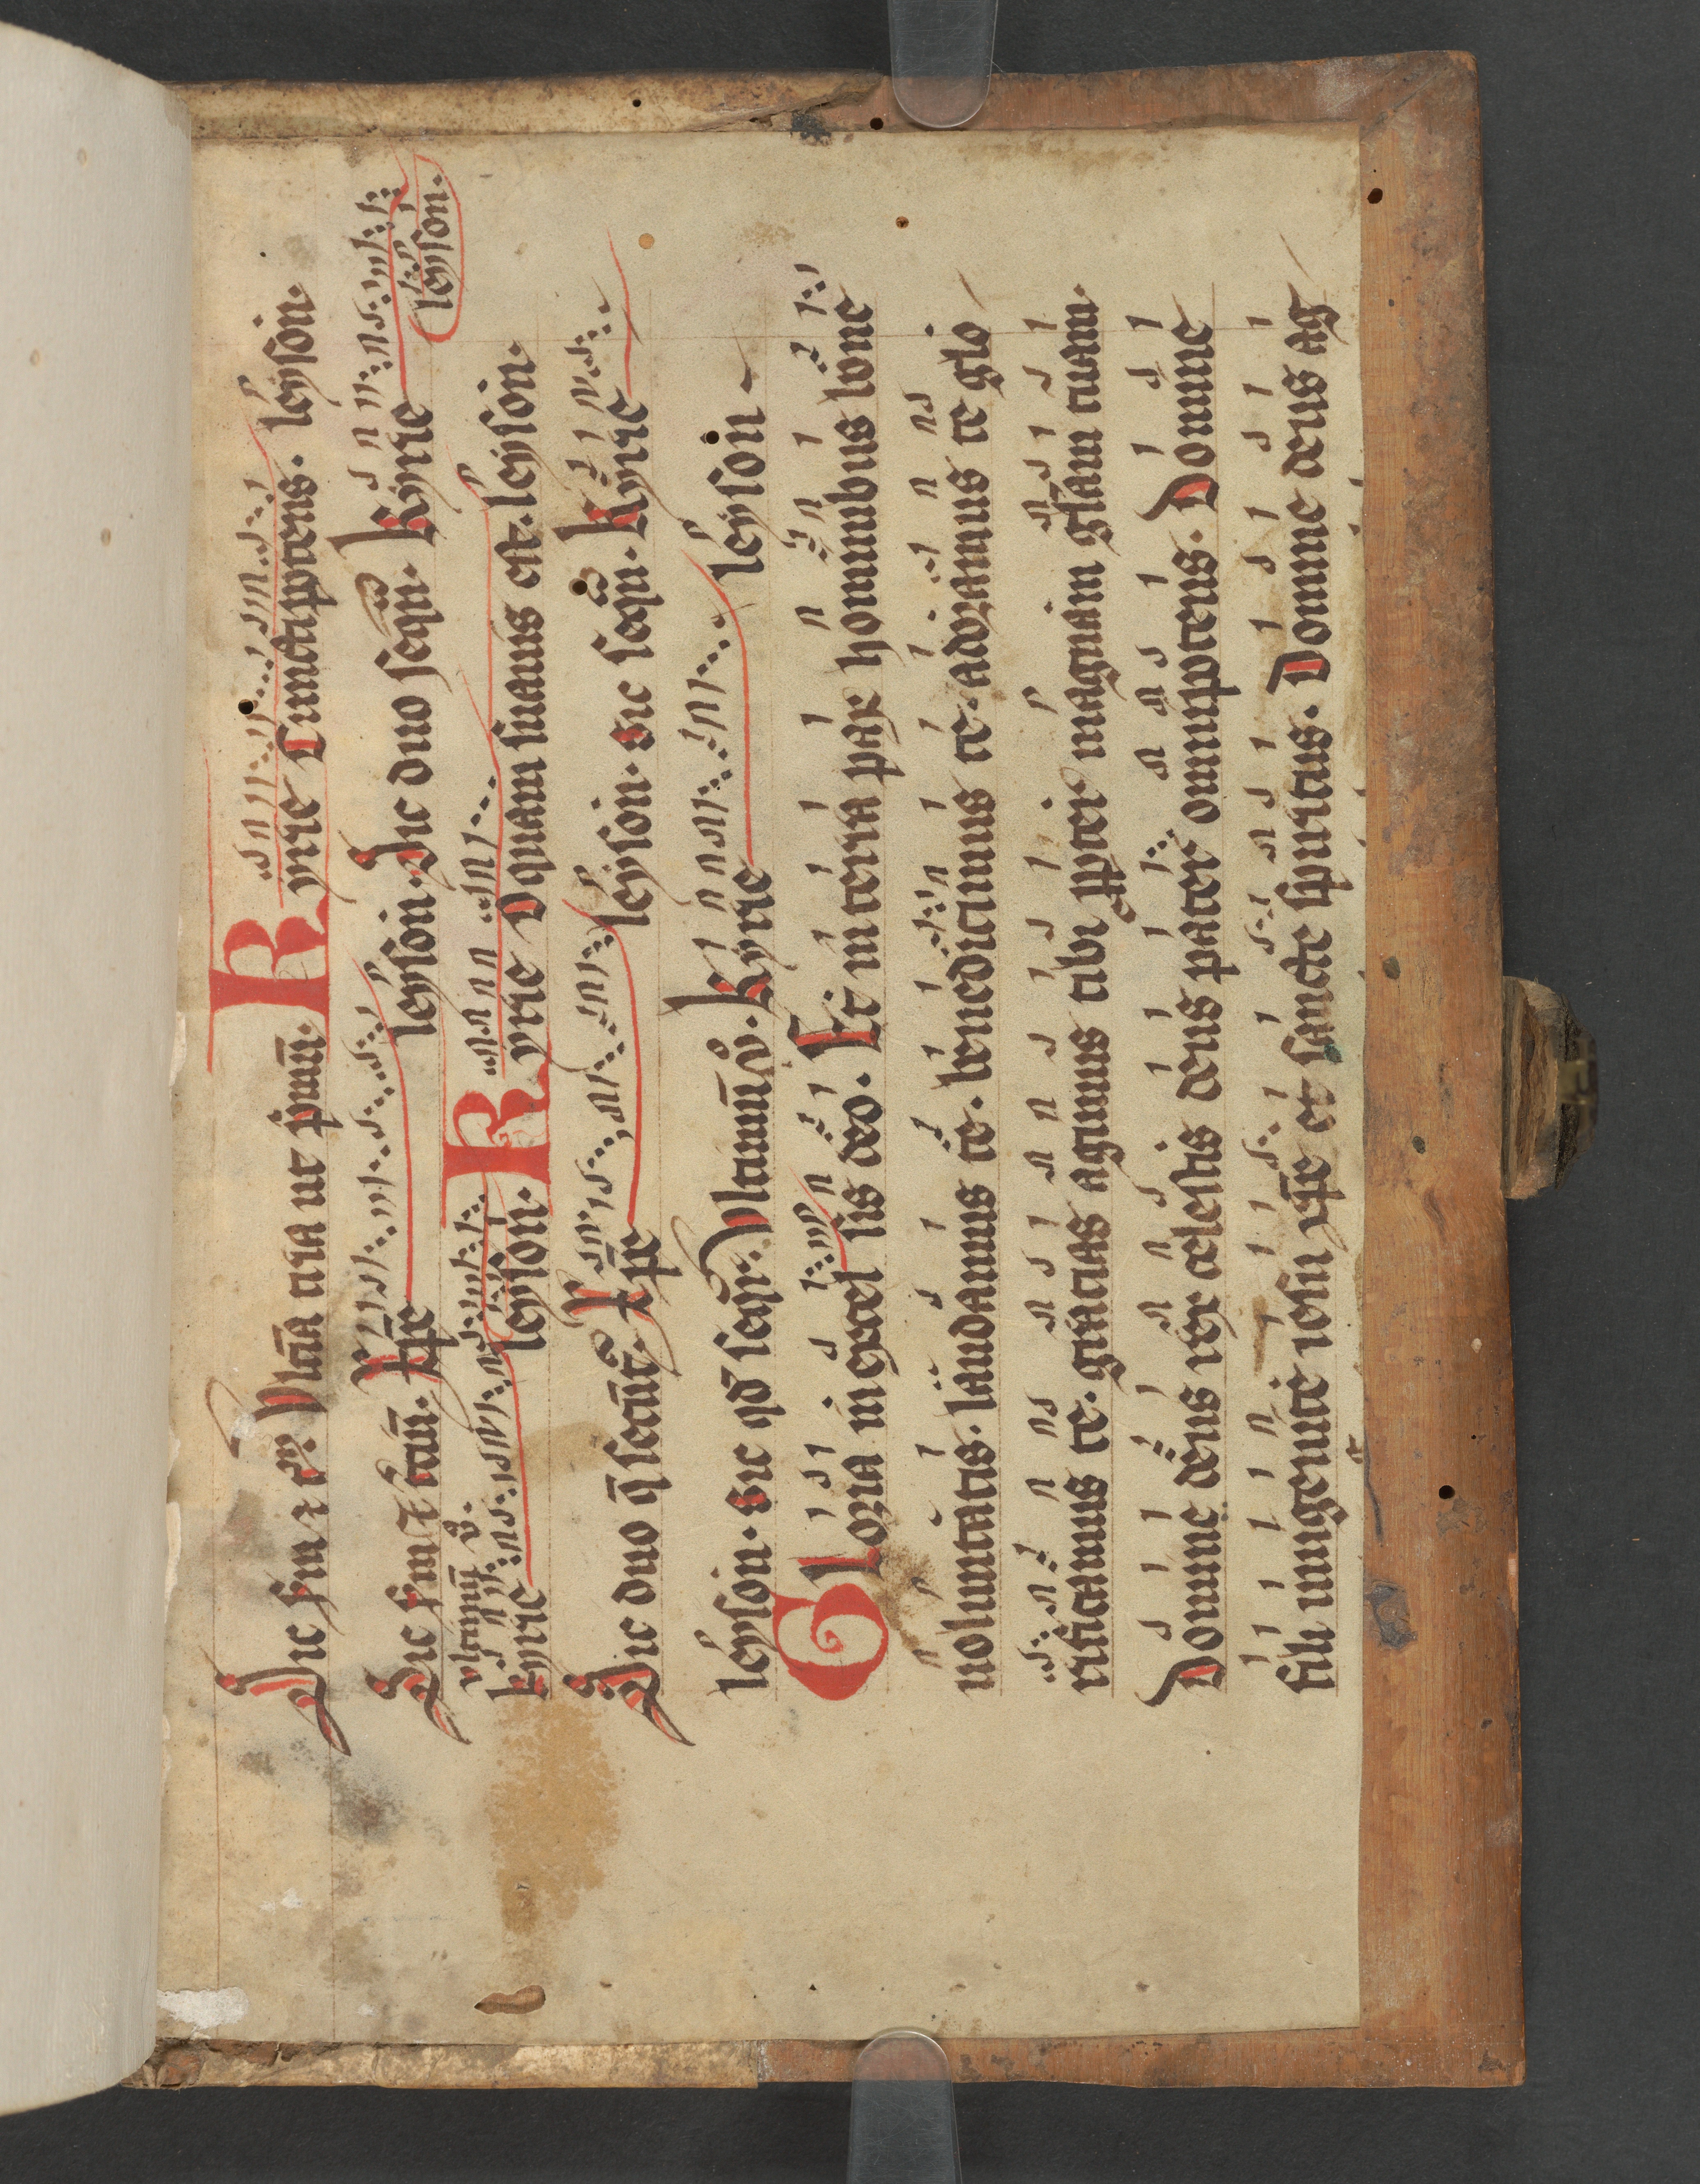 Sic ṡm ⁊ ꝯm̄. Vltīa tria ut pͥmū. Kyrie Cunctip̄otens. leyson.
Sic ṡm ⁊ tcīū. Xp̄e leyson. Sic duo seqn̄. Kyrie leyson.
vltimū ꝟo.
kyrie leyson. Kyrie O quam suauis est. leyson.
Sic duo q̄ secūnt. Xp̄e leyson. Sic seqn̄. Kyrie
leyson. Sic qd̄ seqr. Vltimū ꝟo. Kyrie leyson
Gloria in excel sis deo. Et in terra pax hominibus bone
uoluntatis. laudamus te. benedicimus te. adoramus te glo
rificamus te. gratias agimus tibi ꝓpter magnam gl̄am tuam.
Domine deus rex celestis deus pater omnip̄otens. Domine
fili unigenite iesu xp̄e et sancte spiritus. Domine deus ag